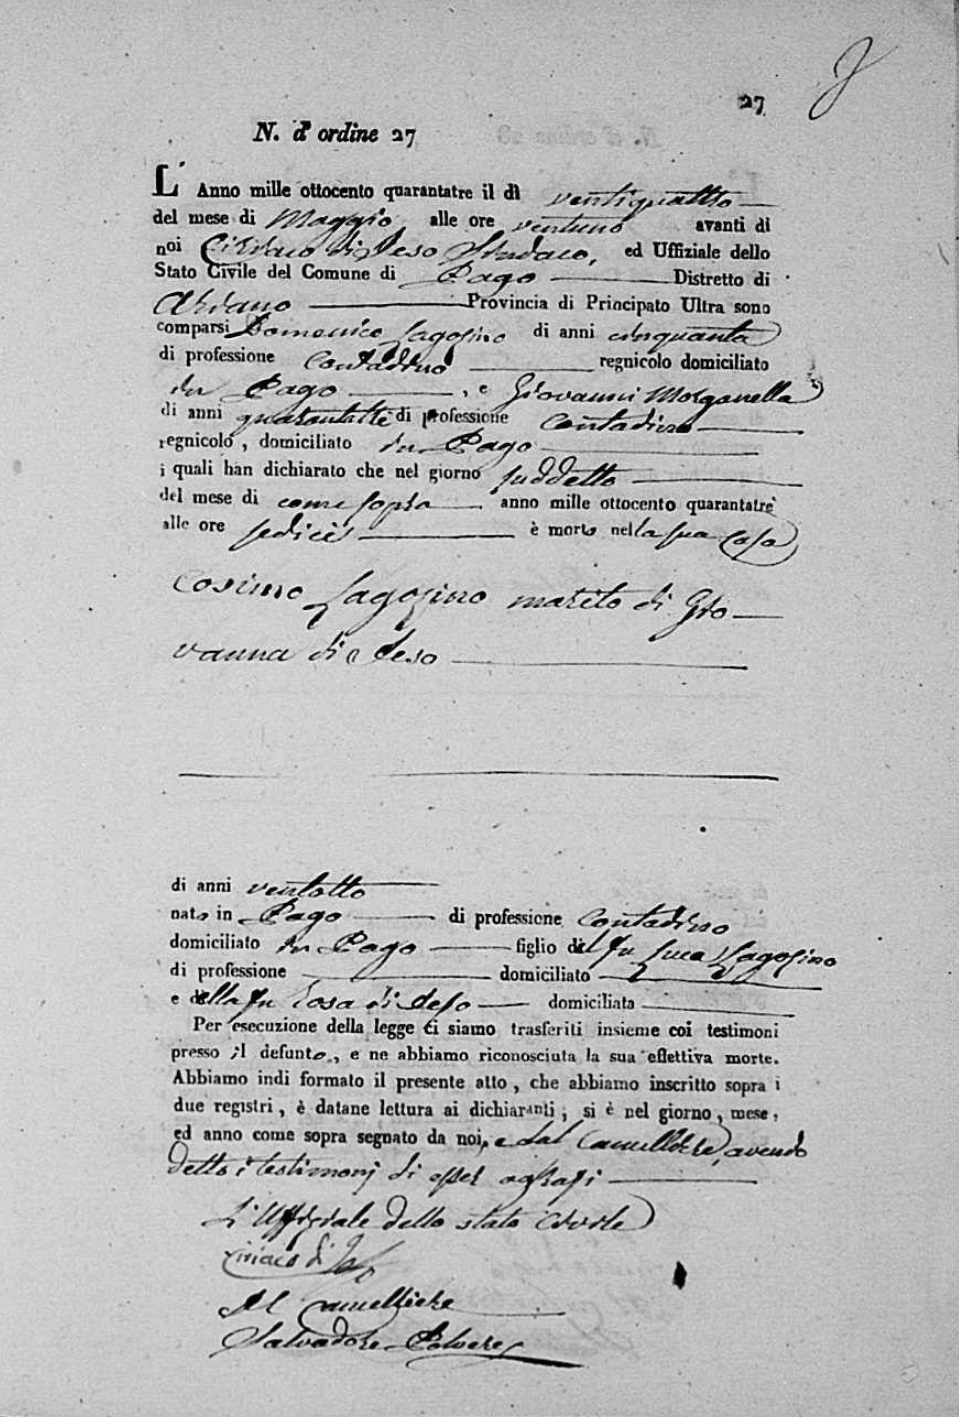 27
N. d'ordine 27
L'Anno mille ottocento quarantatre il dì ventiquattro
del mese di Maggio alle ore ventuno avanti di
noi Ciriaco di Jeso Sindaco, ed Uffiziale dello
Stato Civile del Comune di Pago Distretto di
Ariano Provincia di Principato Ultra sono
comparsi Domenico Lagozino di anni cinquanta
di professione Contadino regnicolo domiciliato
in Pago, e Giovanni Morganella
di anni quarantatre di professione Contadino
regnicolo, domiciliato in Pago
i quali han dichiarato che nel giorno suddetto
del mese di come sopra anno mille ottocento quarantatrè
alle ore sedici è morto nella sua casa
Cosimo Lagozino marito di Gio
vanna di Jeso
di anni ventotto
nato in Pago di professione Contadino
domiciliato in Pago figlio di fu Luca Lagozino
di professione domiciliato
e della fu Rosa di Jeso domiciliata
Per esecuzione della legge ci siamo trasferiti insieme coi testimoni
presso il defunto, e ne abbiamo riconosciuta la sua effettiva morte.
Abbiamo indi formato il presente atto, che abbiamo inscritto sopra i
due registri, è datane lettura ai dichiaranti, si è nel giorno, mese,
ed anno come sopra segnato da noi, e dal Cancelliere, avendo
detto i testimonj di esser
L'Uffiziale dello stato civile
Ciriaco di Jeso
Il Cancelliere
Salvadore Polvere